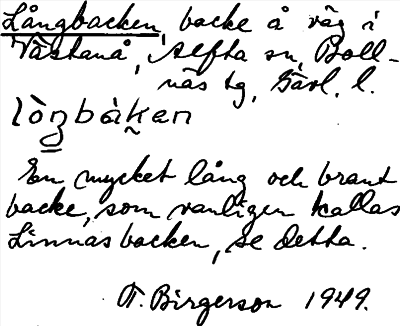 Långbacken, backe å väg i
Västanå, Alfta sn, Boll-
näs tg, Gävl. l.
lòŋbàken
En mycket lång och brant
backe, som vanligen kallas
Linnasbacken, se detta.
T. Birgerson 1949.